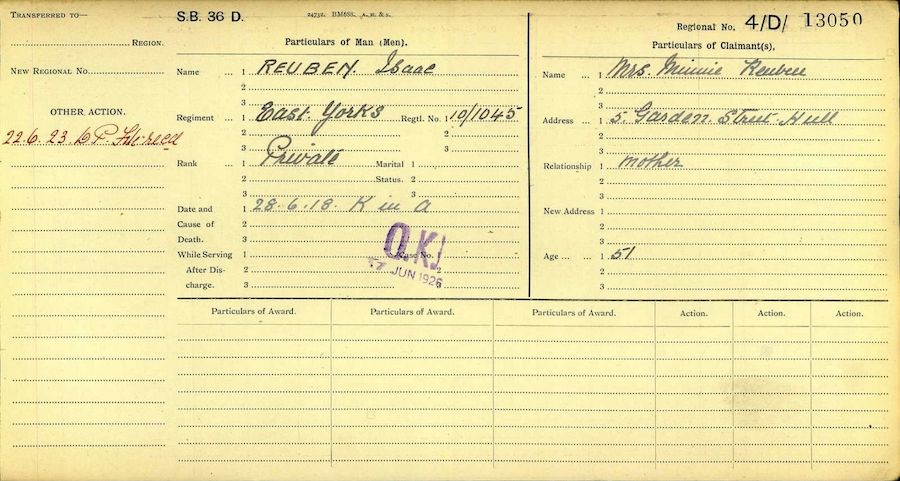 TRANSFERRED TO—
REGION.
NEW REGIONAL No.
OTHER ACTION.
22.6.23
S.B. 36 D. 24732. BM688. A. H. & S.
Particulars of Man (Men).
Name ... 1 REUBEN. Isaac
2
3
Regiment ... 1 East Yorks Regtl. No. 1 10/1045
2 2
3 3
Rank ... 1 Private Marital 1
2 Status. 2
3 3
Date and 1 28.6.18. K in A
Cause of 2
Death. 3
While Serving 1 Case No. 1
After Dis- 2 2
charge. 3
O.K.
17 JUN 1926
Regional No. 4/D/ 13050
Particulars of Claimant(s),
Name ... 1 Mrs. Minnie Reuben
2
3
Address ... 1 5. Garden Street. Hull
2
3
Relationship 1 Mother
2
3
New Address 1
2
3
Age ... ... 1 51
2
3
Particulars of Award. Particulars of Award. Particulars of Award. Action. Action. Action.